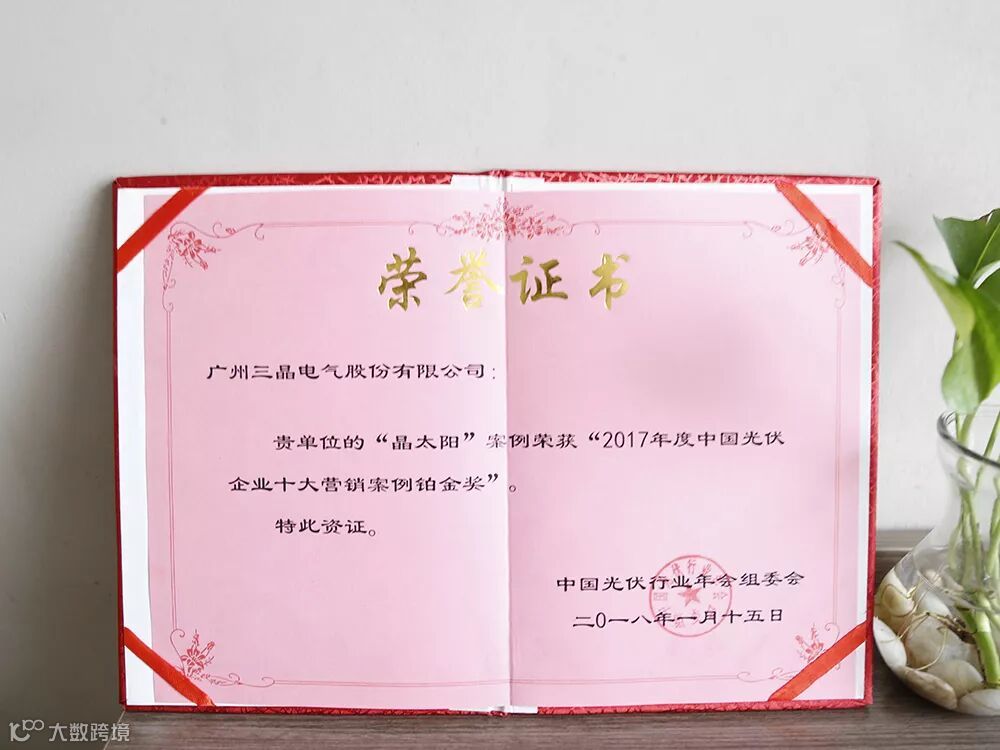 荣誉证书
广州三晶电气股份有限公司：
贵单位的“晶太阳”案例荣获“2017年度中国光伏
企业十大营销案例铂金奖”。
特此资证。
中国光伏行业年会组委会
二0一八年一月十五日
大数跨境